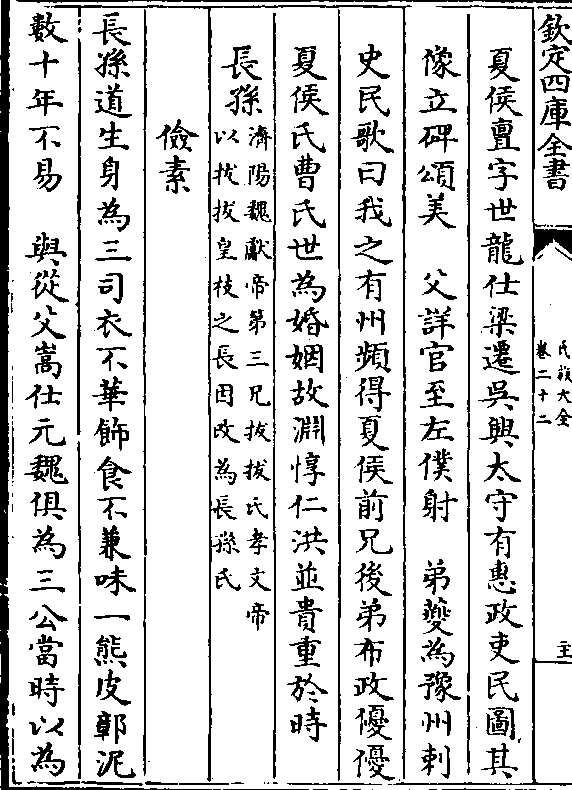 欽定四庫全書
氏族大全
卷二十二
夏侯亶字世龍仕梁遷吳興太守有惠政吏民圖其
像立碑頌美　父詳官至左僕射　弟夔為豫州刺
史民歌曰我之有州頻得夏侯前兄後弟布政優優
夏侯氏曹氏世為婚姻故淵惇仁洪並貴重於時
長孫濟陽魏獻帝第三兄拔拔氏孝文帝
以拔拔皇枝之長因改為長孫氏
儉素
長孫道生身為三司衣不華飾食不兼味一熊皮鄣泥
數十年不易　與從父嵩仕元魏俱為三公當時以為